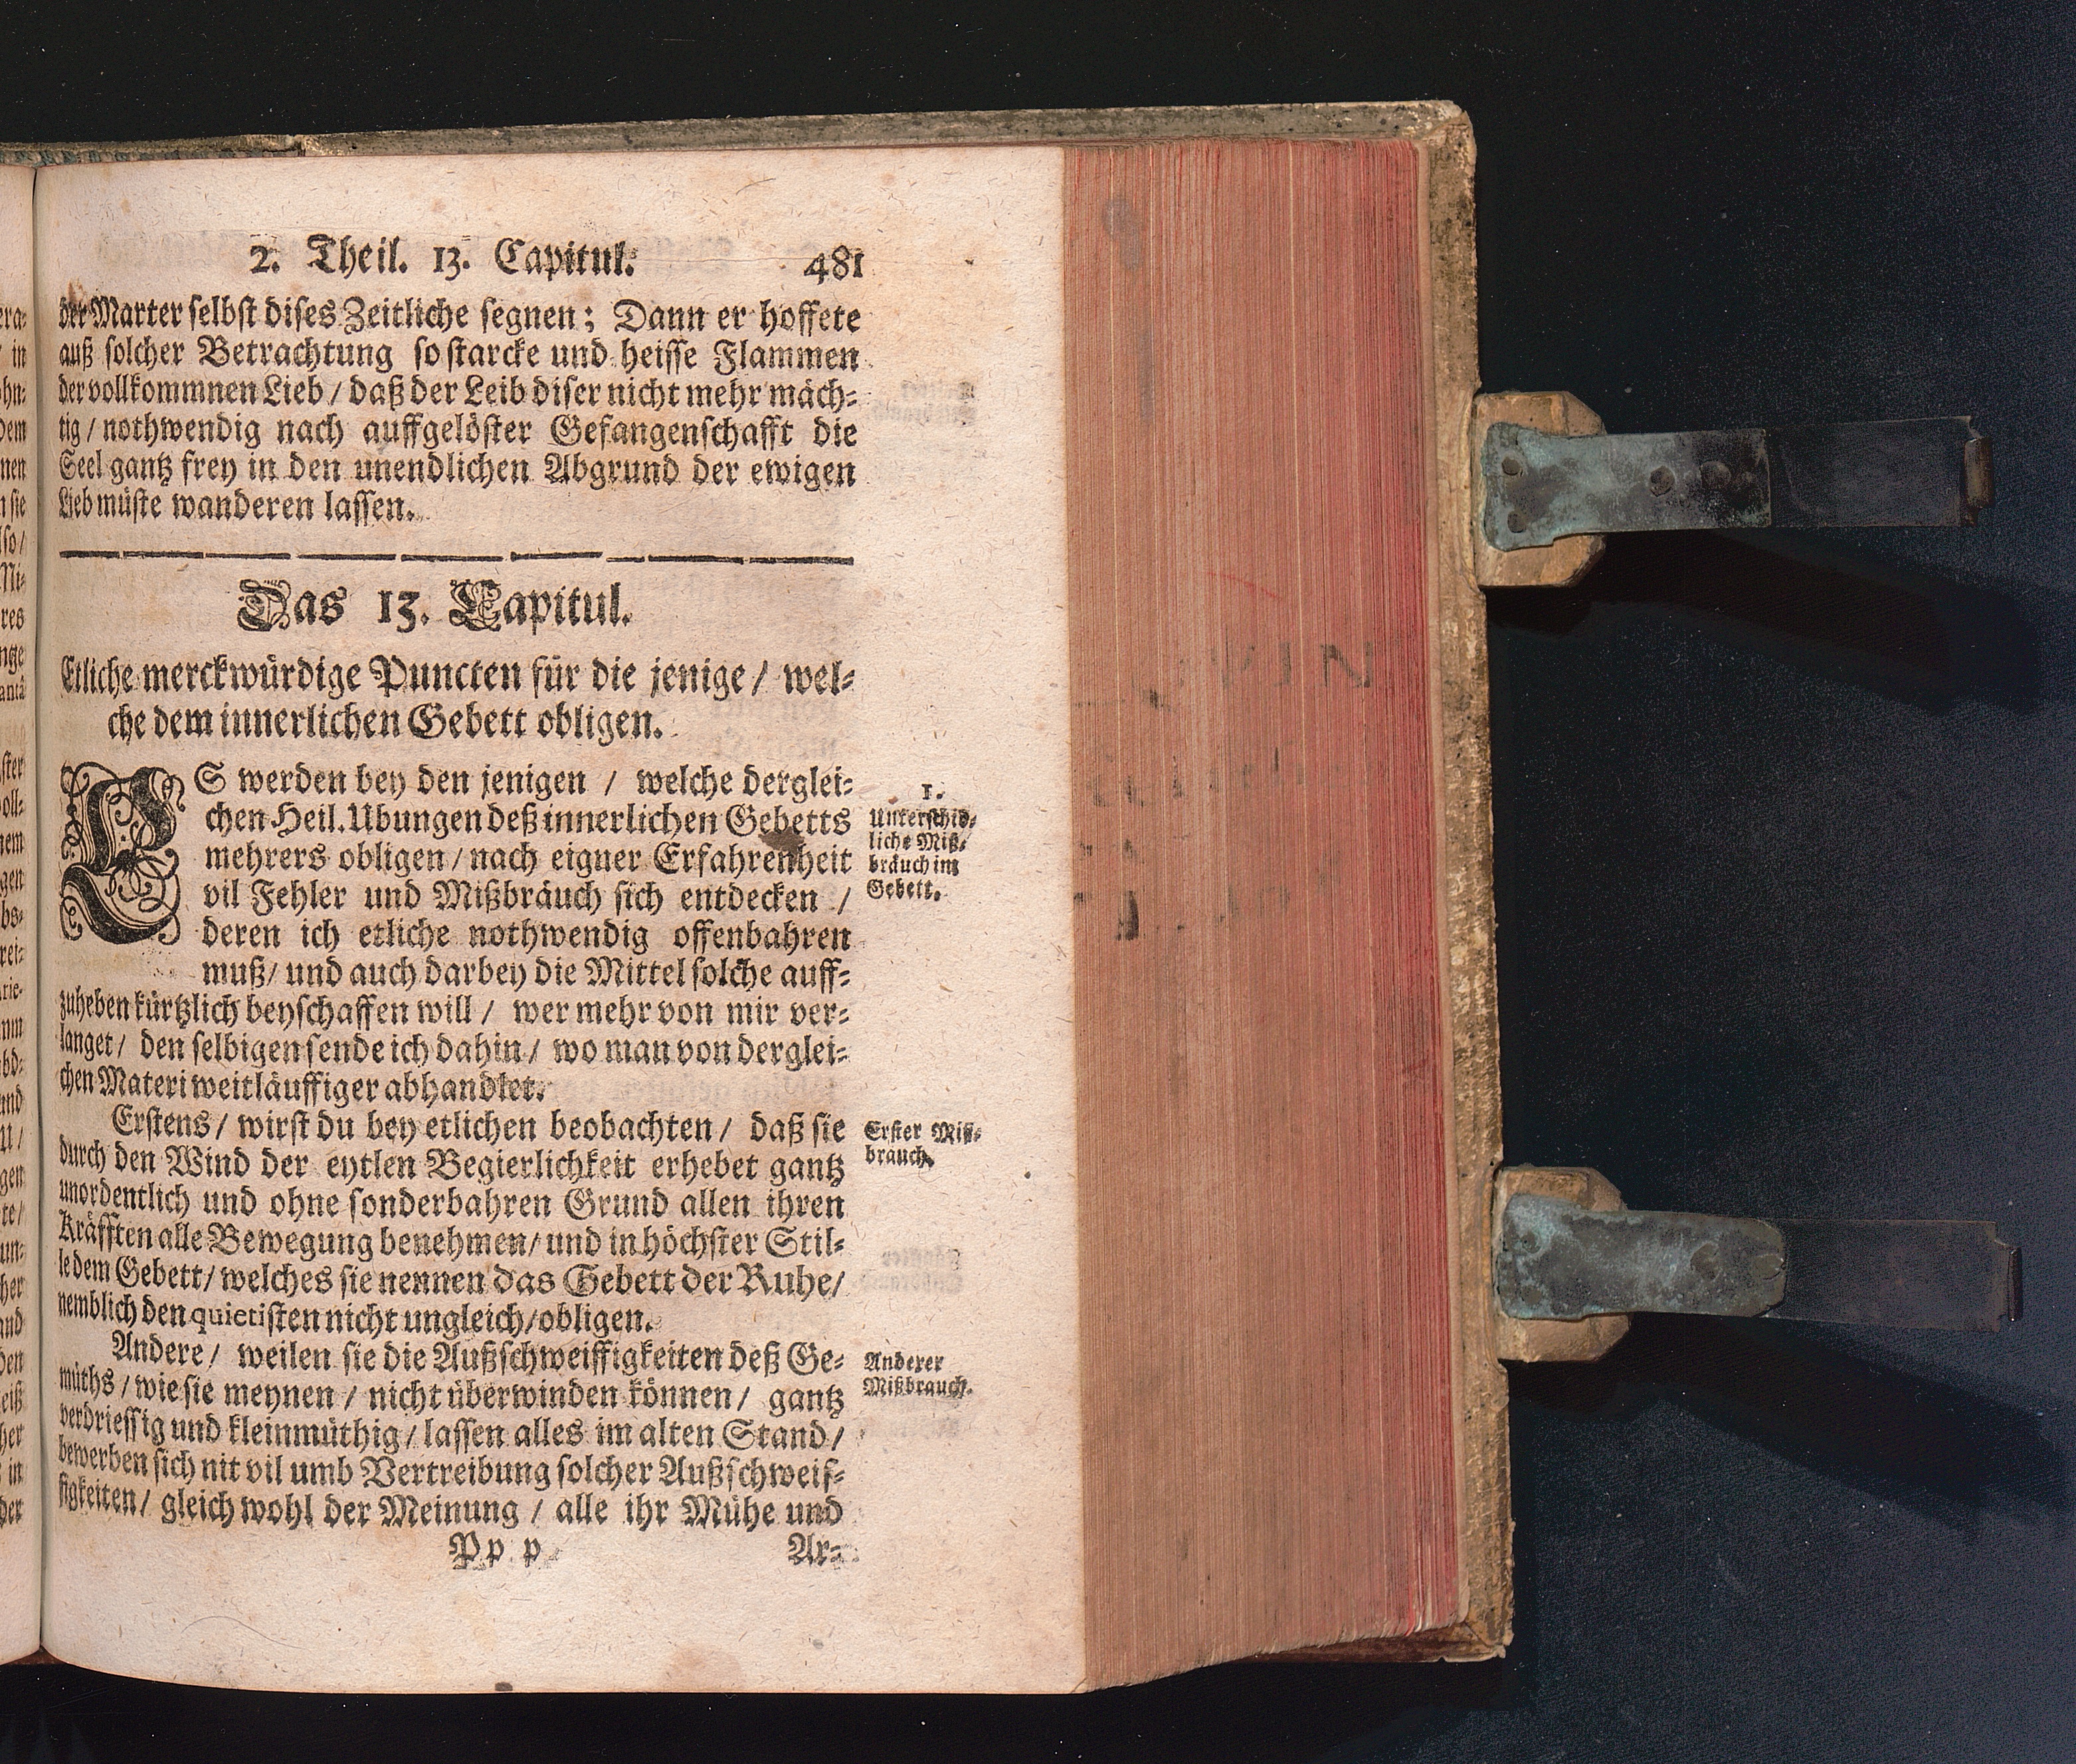 2. Theil. 13. Capitul. 481
der Marter selbst dises Zeitliche segnen; Dann er hoffete
auß solcher Betrachtung so starcke und heisse Flammen
der vollkommnen Lieb / daß der Leib diser nicht mehr mäch-
tig / nothwendig nach auffgelöster Gefangenschafft die
Seel gantz frey in den unendlichen Abgrund der ewigen
Lieb müste wanderen lassen.
Das 13. Capitul.
Etliche merckwürdige Puncten für die jenige / wel-
che dem innerlichen Gebett obligen.
ES werden bey den jenigen / welche derglei-
chen Heil. Ubungen deß innerlichen Gebetts
mehrers obligen / nach eigner Erfahrenheit
vil Fehler und Mißbräuch sich entdecken /
deren ich etliche nothwendig offenbahren
muß / und auch darbey die Mittel solche auff-
zuheben kürtzlich beyschaffen will / wer mehr von mir ver-
langet / den selbigen sende ich dahin / wo man von derglei-
chen Materi weitläuffiger abhandlet.
1.
Unterschid-
liche Miß-
bräuch im
Gebett.
Erstens / wirst du bey etlichen beobachten / daß sie
durch den Wind der eytlen Begierlichkeit erhebet gantz
unordentlich und ohne sonderbahren Grund allen ihren
Kräfften alle Bewegung benehmen / und in höchster Stil-
le dem Gebett / welches sie nennen das Gebett der Ruhe /
nemblich den quietisten nicht ungleich / obligen.
Erster Miß-
brauch.
Andere / weilen sie die Außschweiffigkeiten deß Ge-
müths / wie sie meynen / nicht überwinden können / gantz
verdriessig und kleinmüthig / lassen alles im alten Stand /
bewerben sich nit vil umb Vertreibung solcher Außschweif-
figkeiten / gleich wohl der Meinung / alle ihr Mühe und
Anderer
Mißbrauch.
Pp p Ar-